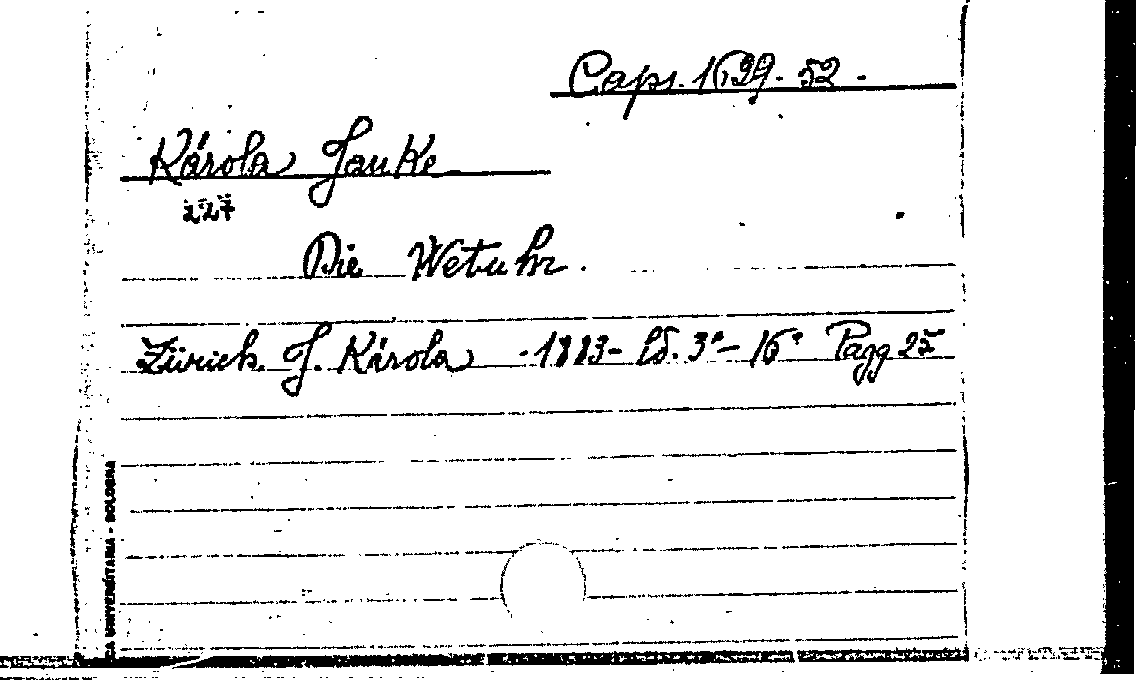 Caps. 1639. 52.
Károla Janke
227
Die Wetuhr.
Zürich. J. Károla - 1883 - Ed. 3ª - 16° Pagg 25
CA UNIVERSITARIA - BOLOGNA